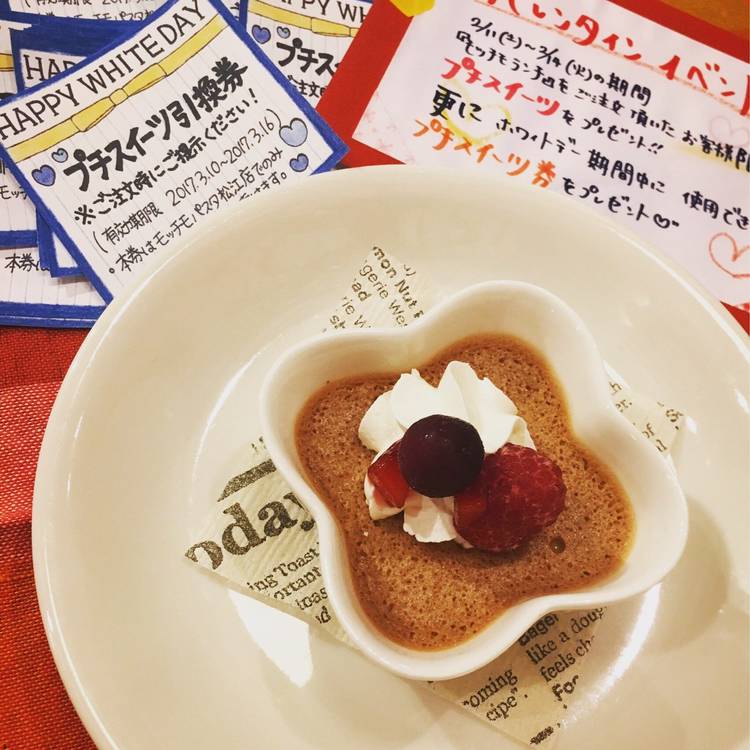 HAPPY WHITE DAY
プチスイーツ引換券
※ご注文時にご提示ください!
(有効期限 2017.3.10~2017.3.16)
・本券はモッチモパスタ松江店でのみ
HAPPY WHITE DAY
プチスイ
HAPP
モッチモ
本券は
バレンタインイベン
2/11(土)~2/14(火)の期間
モッチモランチをご注文頂いたお客様
プチスイーツをプレゼント!!
更にホワイトデー期間中に使用でき
プチスイーツ券をプレゼント
mon Nut
gerie
ead
oday
ing Toast
portant
toas
nd
Bage
like a doug
feels
coming
cipe".